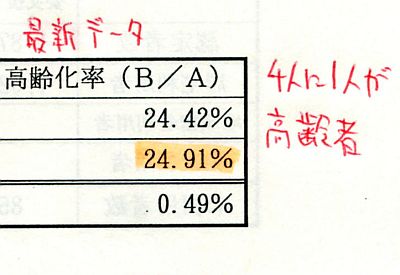 最新データ
高齢化率(B/A)
24.42%
24.91%
0.49%
4人に1人が
高齢者